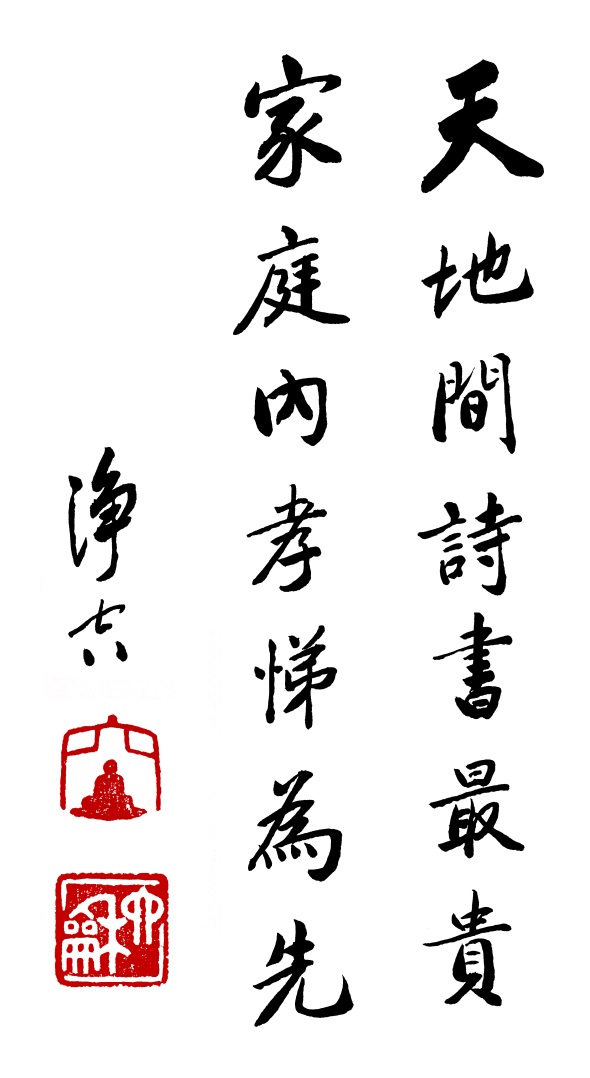 天地間詩書最貴
家庭內孝悌為先
淨空
六龢